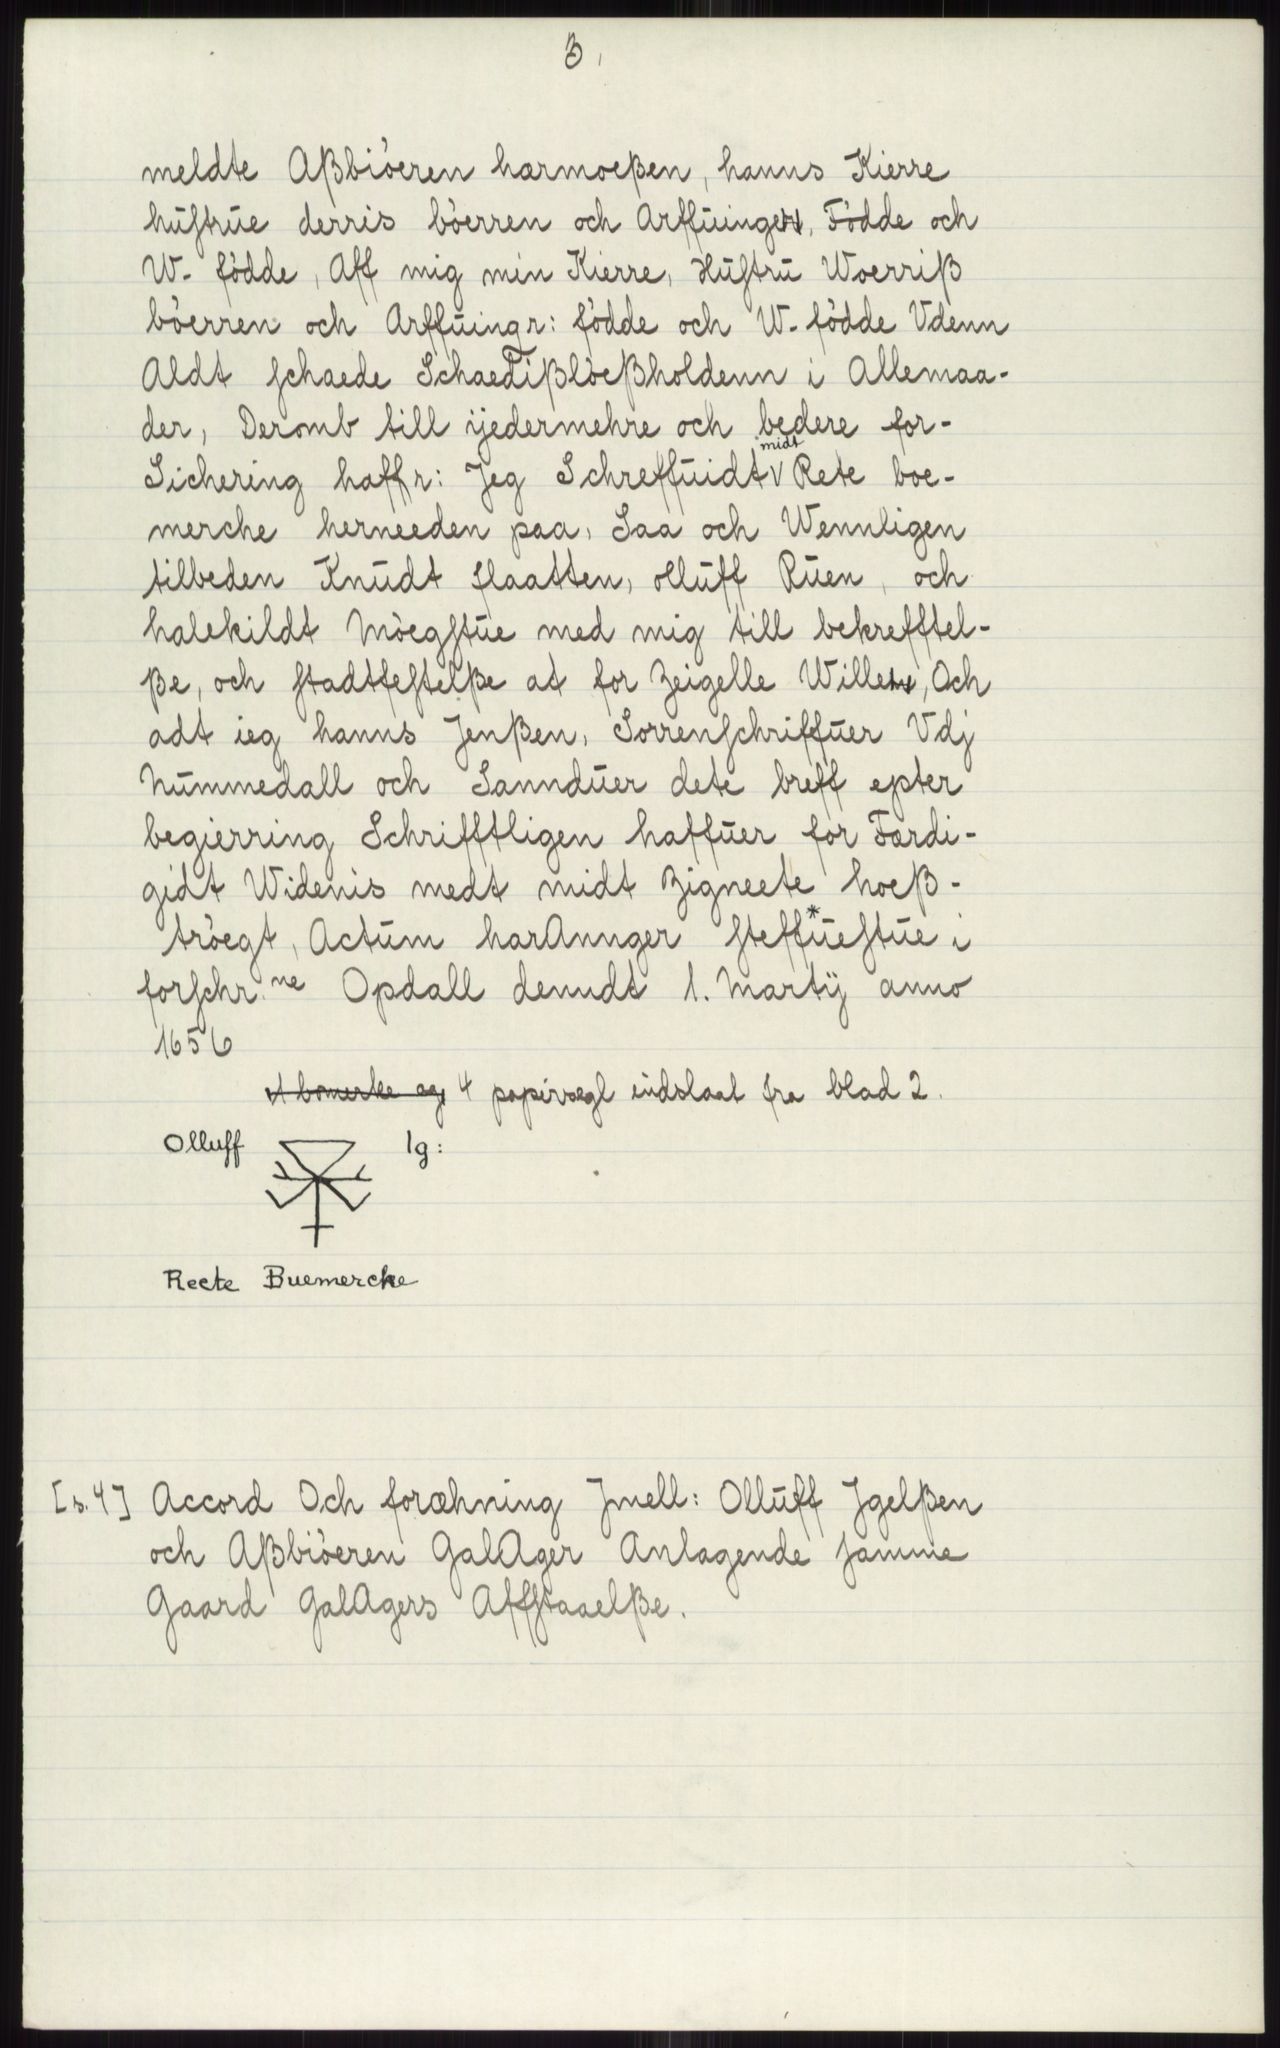 3,
meldte Aßbiòeren harmoeßen, hanns Kierre
hustrue derris bòerren och Arffuinger, Fòdde och
W- fòdde, Aff mig min Kierre, Hustru Woerriß
bòerren och Arffuingr: fòdde och W-fòdde Vdenn
Aldt schaede Schaedißlòeßholdenn i Allemaa-
der, Deromb till ÿedermehre och bedere for-
Sichering haffr: Jeg Schreffuidt midt Rete boe-
mercke herneeden paa, Saa och Wennligen
tilbeden Knudt Haatten, olluff Ruen, och
halekildt Mòegstue med mig till bekrefftel-
ße, och stadtfestelße at for Zeigelle Willer, Och
adt ieg hanns Jenßen, Sorrenschriffuer Vdj
Nummedall och Sannduer dete breff epter
begierring Schrifftligen haffuer for Færdi-
gidt Widenis medt midt Zigneete hoeß-
tròegt, Actum harAnnger steffuestue* i
forschr.ne Opdall denndt 1. Martÿ anno
1656
1 bomerke og 4 papirsegl iudslaat fra blad 2.
Olluff Ig:
Reete Buemercke
[s. 4] Accord Och foræhning Jmell: Olluff Jgelßen
och Aßbiòeren GalAger Anlagende samme
Gaard GalAgers Affstaaelße.